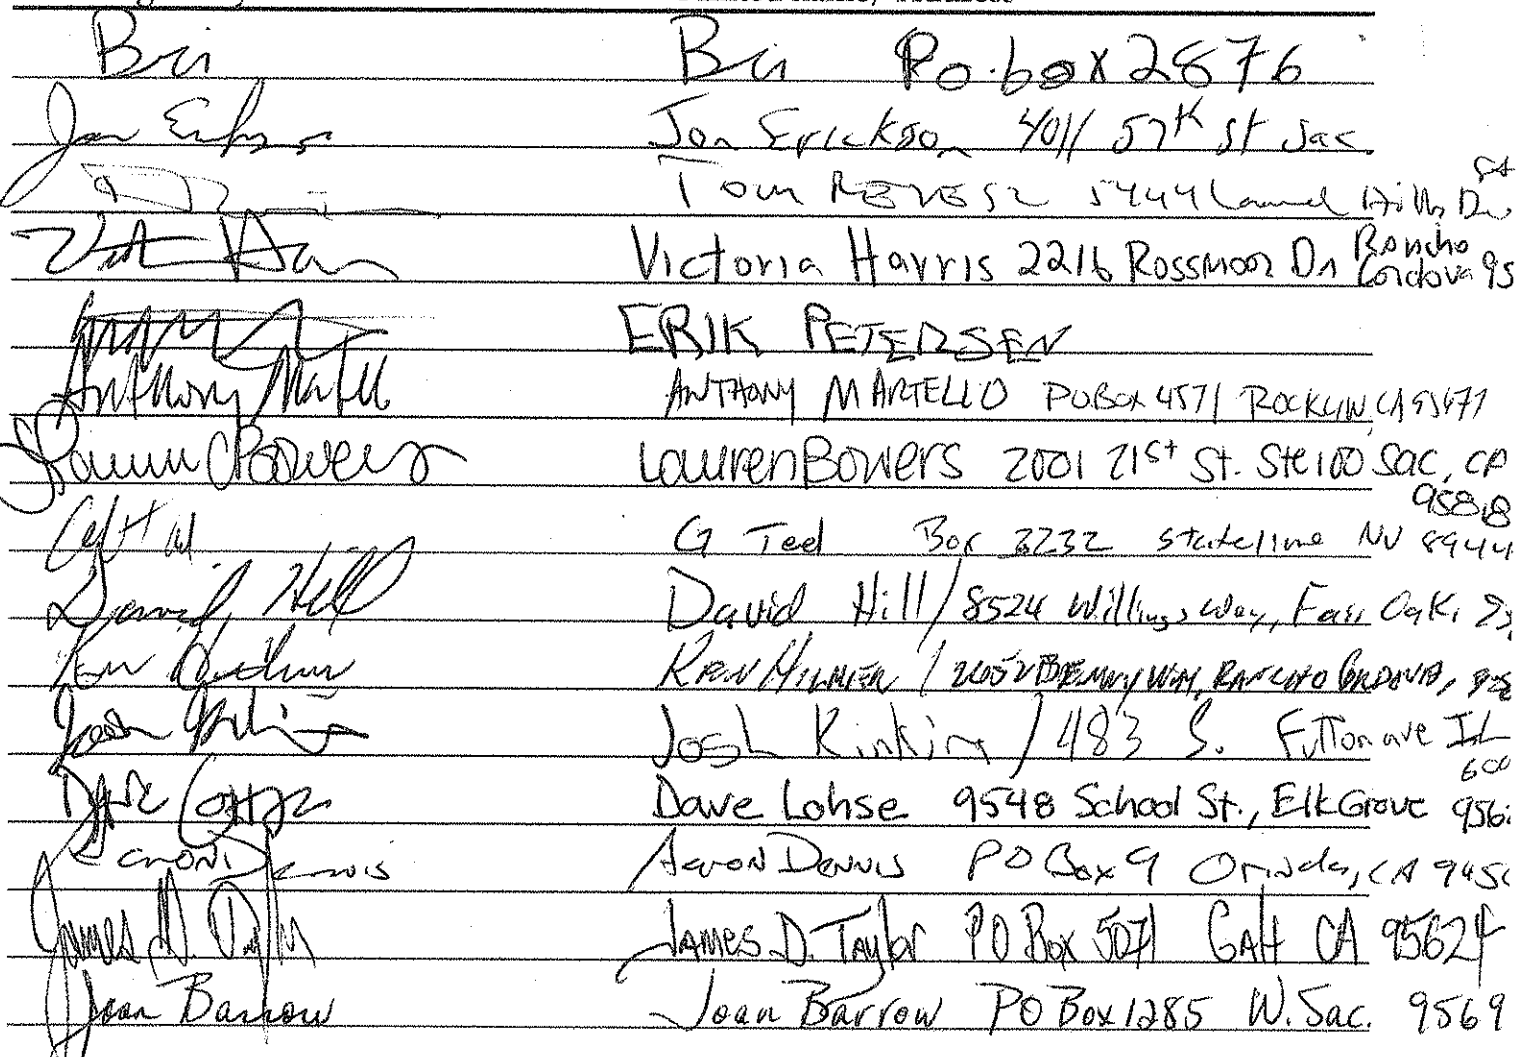 Bri Bri Po.box 2876
Jon Erickson Jon Erickson 4011 57th St Sac.
Tom REVESZ 5444 Laurel Hills Dr
Victoria Harris 2216 Rossmoor Dr Rancho Cordova 95
ERIK PETERSEN
Anthony ANTHONY MARTELLO PO BOX 4571 ROCKLIN, CA 95677
Lauren Bowers Lauren Bowers 2001 21st St. Ste 100 Sac, CA
95818
G Teel Box 3232 stateline NV 8944
David Hill David Hill / 8524 Willings Way, Fair Oaks
Ken Ken / BENNY WAY, RANCHO CORDOVA,
Josh Josh / 483 S. Fulton ave IL
600
Dave Lohse 9548 School St., Elk Grove 956
Aaron Dennis Aaron Dennis PO Box 9 Orinda, CA 945
James D. Taylor James D. Taylor PO Box 5071 Galt CA 95624
Joan Barrow Joan Barrow PO Box 1285 W. Sac. 9569